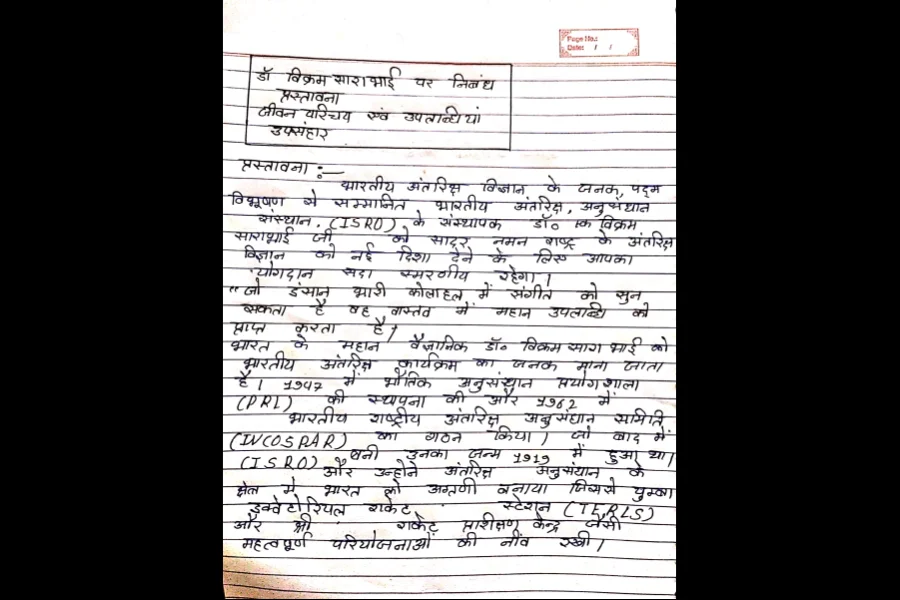 Page No.:
Date: / /
डॉ विक्रम साराभाई पर निबंध
प्रस्तावना
जीवन परिचय एवं उपलब्धियां
उपसंहार
प्रस्तावना :—
भारतीय अंतरिक्ष विज्ञान के जनक, पद्म
विभूषण से सम्मानित भारतीय अंतरिक्ष, अनुसंधान
संस्थान, (ISRO) के संस्थापक डॉ० विक्रम
साराभाई जी को सादर नमन राष्ट्र के अंतरिक्ष
विज्ञान को नई दिशा देने के लिए आपका
योगदान सदा स्मरणीय रहेगा।
"जो इंसान भारी कोलाहल में संगीत को सुन
सकता है वह वास्तव में महान उपलब्धि को
प्राप्त करता है।
भारत के महान वैज्ञानिक डॉ० विक्रम सारा भाई को
भारतीय अंतरिक्ष कार्यक्रम का जनक माना जाता
है। 1947 में भौतिक अनुसंधान प्रयोगशाला
(PRL) की स्थापना की और 1962 में
भारतीय राष्ट्रीय अंतरिक्ष अनुसंधान समिति
(INCOSPAR) का गठन किया। जो बाद में
(ISRO) बनी उनका जन्म 1919 में हुआ था।
और उन्होंने अंतरिक्ष अनुसंधान के
क्षेत्र में भारत को अग्रणी बनाया जिससे थुम्बा
इक्वेटोरियल राकेट स्टेशन (TERLS)
और श्री राकेट प्रक्षेपण केन्द्र जैसी
महत्वपूर्ण परियोजनाओं की नींव रखी।